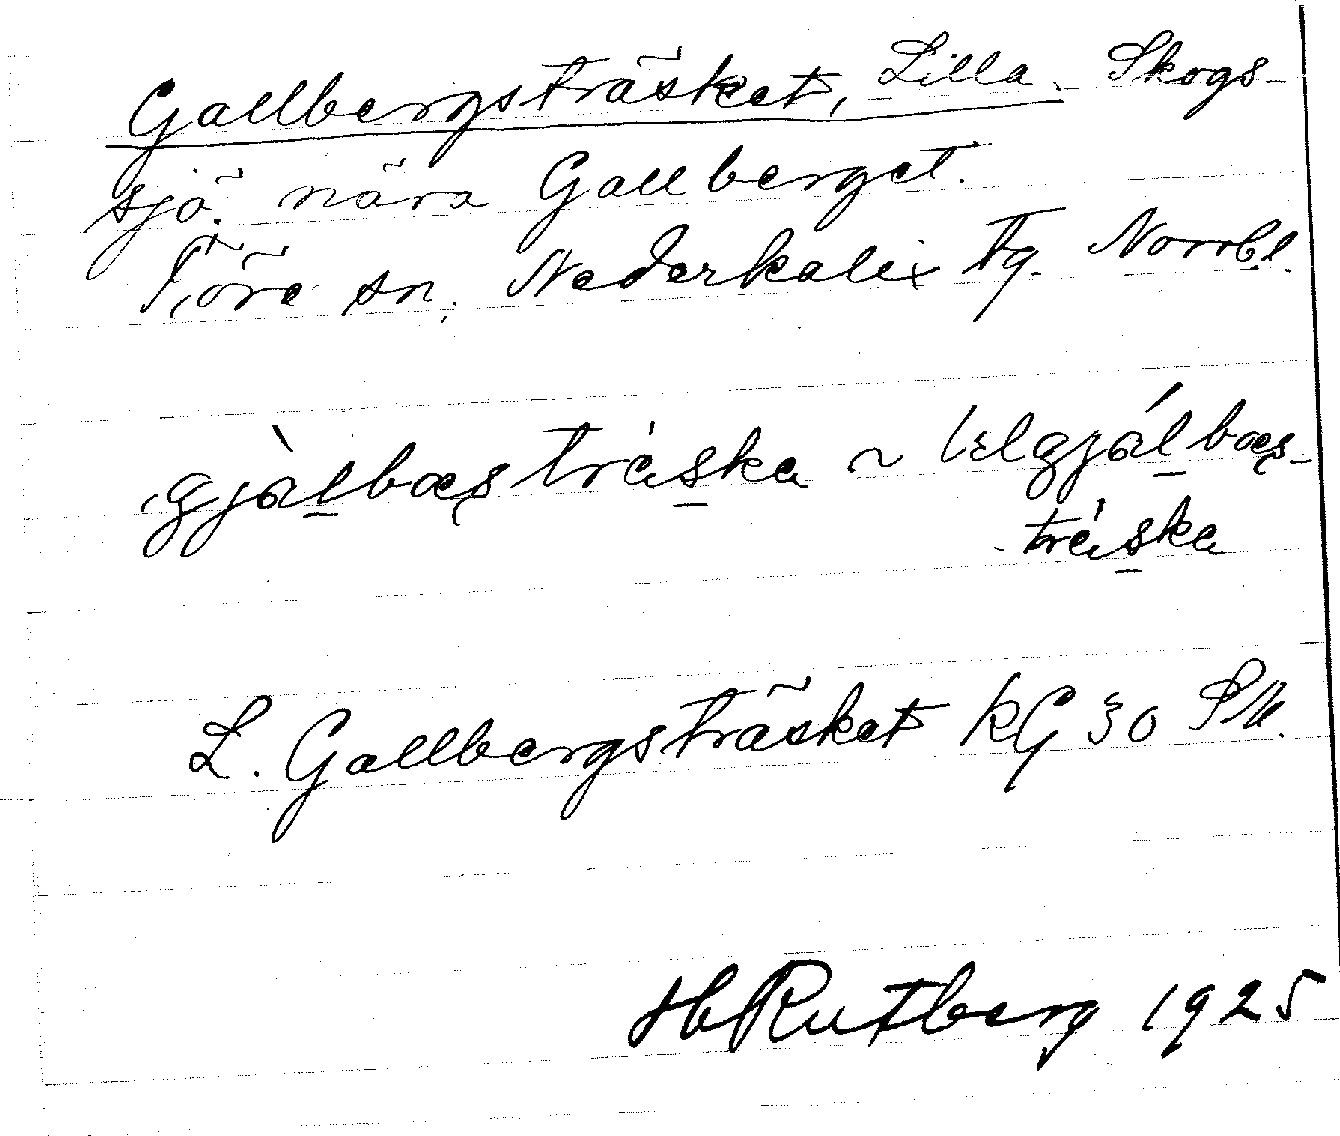 Gallbergsträsket, Lilla. Skogs-
sjö nära Gallberget.
Töre sn, Nederkalix tg. Norrb.l.
gjàlbæstráska ~ lɪlgjálbæs-
tráska
L. Gallbergsträsket kG 30 SM.
HRutberg 1925